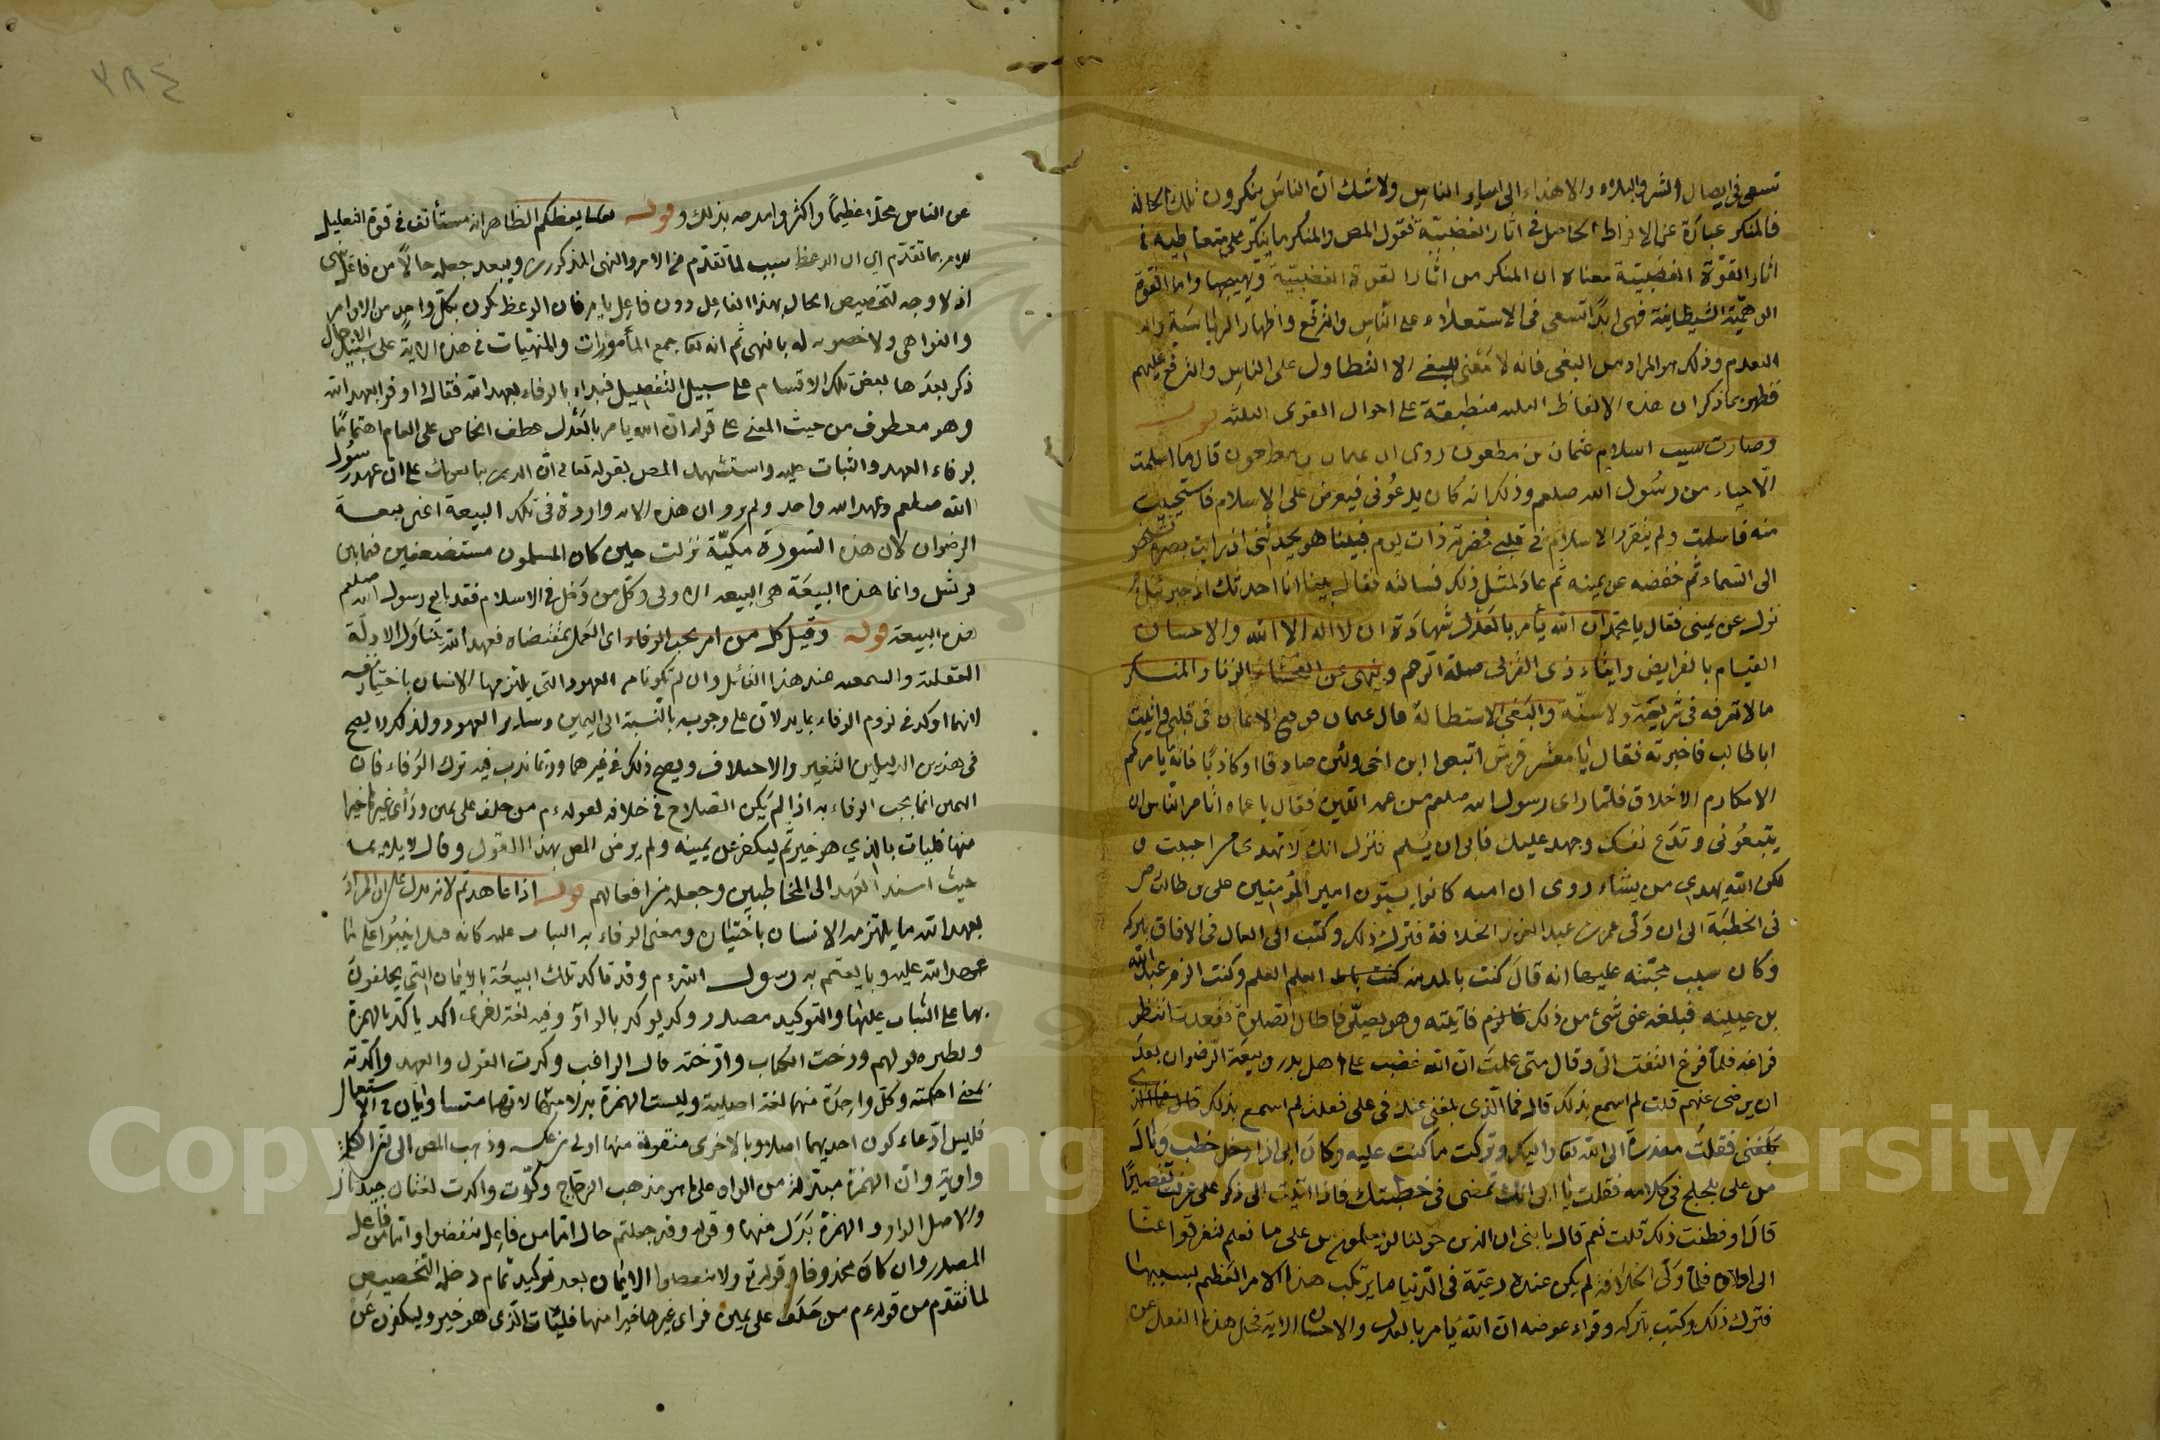 تسعى في ايصال الشر والبلاء والايذاء الى سائر الناس ولا شك ان الناس ينكرون تلك الحالة
فالمنكر عبارة عن الافراط الحاصل في اثار الغضبية فقول المص والمنكر ما ينكر على متعاطيه في
اثارة القوة الغضبية معناه ان المنكر من اثار القوة الغضبية وتهييجها واما القوة
الوهمية الشيطانية فهي ابدا تسعى في الاستعلاء على الناس والترفع واظهار الرياسة
التقدم وذلك هو المراد من البغي فانه لا معنى للبغي الا التطاول على الناس والترفع عليهم
فظهر بما ذكر ان هذه الالفاظ الثلثة منطبقة على احوال القوى الثلثة قوله
وصارت سبب اسلام عثمان بن مظعون روى ان عثمان بن مظعون قال ما اسلمت
الا حياء من رسول الله صلعم وذلك انه كان يدعوني فيعرض على الاسلام فاستحييت
منه فاسلمت ولم يتقرر الاسلام في قلبي فحضرته ذات يوم فبينا هو يحدثني اذ رايت بصره شخص
الى السماء ثم خفضه عن يمينه ثم عاد لمثل ذلك فسالته فقال بينا انا احدثك اذ جبرئيل
نزل عن يميني فقال يا محمد ان الله يأمر بالعدل شهادة ان لا اله الا الله والاحسان
القيام بالفرايض وايتاء ذي القربى صلة الرحم وينهى عن الفحشاء الزنا والمنكر
ما لا تعرفه في شريعة ولا سنة والبغي الاستطالة قال عثمان فوقع الايمان في قلبي فاتيت
ابا طالب فاخبرته فقال يا معشر قريش اتبعوا ابن اخي ولئن صادقا او كاذبا فانه يامركم
الا مكارم الاخلاق فلما راى رسول الله صلعم من عمه اللين فقال يا عماه اتامر الناس ان
يتبعوني وتدع نفسك وجهد عليك فابى ان يسلم فنزل انك لا تهدي من احببت و
لكن الله يهدي من يشاء روى ان امية كانوا يسبون امير المؤمنين على بن طالب رض
في الخطبة الى ان ولى عمر بن عبد العزيز الخلافة فترك ذلك وكتب الى العمال في الافاق بتركه
وكان سبب محبته عليا انه قال كنت بالمدينة اتعلم العلم وكنت الزم عبد الله
بن عبد الله فبلغه عني شئ من ذلك فاتيته وهو يصلي فاطال الصلوة فقعدت انتظر
فراغه فلما فرغ التفت الى وقال متى علمت ان الله غضب على اهل بدر وبيعة الرضوان بعد
ان يرضى عنهم قلت لم اسمع بذلك قال فما الذي بلغني عنك في على فعلت لم اسمع بذلك
بلغني فقلت معذرة الى الله تعا واليك وتركت ما كنت عليه وكان ابي اذا دخل خطب ونال
من على يلجلج في كلامه فقلت يا ابي انك تمضي في خطبتك فاذا اتيت الى ذكر على عرفت تقصيرا
قال او فطنت ذلك قلت نعم قال يا بني ان الذين حولنا لو يعلمون من على ما نعلم لتفرقوا عنا
الى اولاده فلما ولى الخلافة لم يكن عنده رعية في الدنيا ما يرتكب هذا الامر العظيم بسببها
فترك ذلك وكتب بتركه وقراء عوضه ان الله يامر بالعدل والاحسان الاية فحل هذا الفعل عن
عن الناس محلا عظيما واكثروا مدحه بذلك و قوله يعظكم الظاهر انه مستأنف في قوة التعليل
للامر بما تقدم اي ان الوعظ سبب لما تقدم من الامر والنهي المذكورين ويبعد جعله حالا من فاعل ينهى
اذ لا وجه لتخصيص الحال بهذا الفاعل دون فاعل يامر فان الوعظ يكون بكل واحد من الاوامر
والنواهي ولا خصوص له بالنهي ثم انه تعا جمع المأمورات والمنهيات في هذه الاية على سبيل الاجمال
ذكر بعدها بعض تلك الاقسام على سبيل التفصيل فبداء بالوفاء بعهد الله فقال واوفوا بعهد الله
وهو معطوف من حيث المعنى على قوله ان الله يامر بالعدل عطف الخاص على العام اهتماما
بوفاء العهد والثبات عليه واستشهد المص بقوله تعالى ان الذين يبايعونك على ان عهد رسول
الله صلعم وعهد الله واحد ولم يرو ان هذه الاية واردة في تلك البيعة اعني بيعة
الرضوان لان هذه السورة مكية نزلت حين كان المسلمون مستضعفين فيما بين
قريش وانما هذه البيعة هي البيعة الاولى وكل من دخل في الاسلام فقد بايع رسول الله صلعم
هذه البيعة قوله وقيل كل من امر يجب الوفاء اى العمل بمقتضاه فعهد الله يتناول الادلة
العقلية والسمعية عند هذا القائل وان لم تكونا من العهود التي يلتزمها الانسان باختيار نفسه
لانهما اوكد في لزوم الوفاء بما يدلان على وجوبه بالنسبة الى اليمين وساير العهود ولذلك لا يصح
في هذين الدليلين التغير والاختلاف ويصح ذلك في غيرهما وربما ندب فيه ترك الوفاء فان
اليمين انما يجب الوفاء به اذا لم يكن الصلاح في خلافه لقوله م من حلف على يمين ورأى غيرها خيرا
منها فليات بالذي هو خير ثم ليكفر عن يمينه ولم يرض المص بهذا القول وقال لا يلايمه
حيث اسند العهد الى المخاطبين وجعله من افعالهم قوله اذا عاهدتم لانه يدل على ان المراد
بعهد الله ما يلتزمه الانسان باختياره ومعنى الوفاء به الثبات عليه كانه قيل اثبتوا على ما
عهد الله عليه وبايعتم به رسول الله م وقد تاكد تلك البيعة بالايمان التي يحلفون
بها على الثبات عليها والتوكيد مصدر وكد يوكد بالواو وفيه لغة اخرى اكد ياكد بالهمزة
ونظيره قولهم ورخت الكتاب وارخته قال الراغب وكدت القول والعهد واكدته
بمعنى احكمته وكل واحدة منهما لغة اصلية وليست الهمزة بدلا منها لانهما متساويان في الاستعمال
فليس ادعاء كون احديهما اصلا والاخرى منقولة منها اولى من عكسه وذهب المص الى
وان الهمزة مبدلة من الواو على ما هو مذهب الزجاج وكدت واكدت لغتان جيدتان
والاصل الواو والهمزة بدل منها وقوله وقد جعلتم حال اما من فاعل تنقضوا واما من فاعل
المصدر وان كان محذوفا وقوله تع ولا تنقضوا الايمان بعد توكيدها عام دخله التخصيص
لما تقدم من قوله م من حلف على يمين فراى غيرها خيرا منها فليات الذي هو خير وليكفر عن
٣٨٤
Copyright © King Saud University